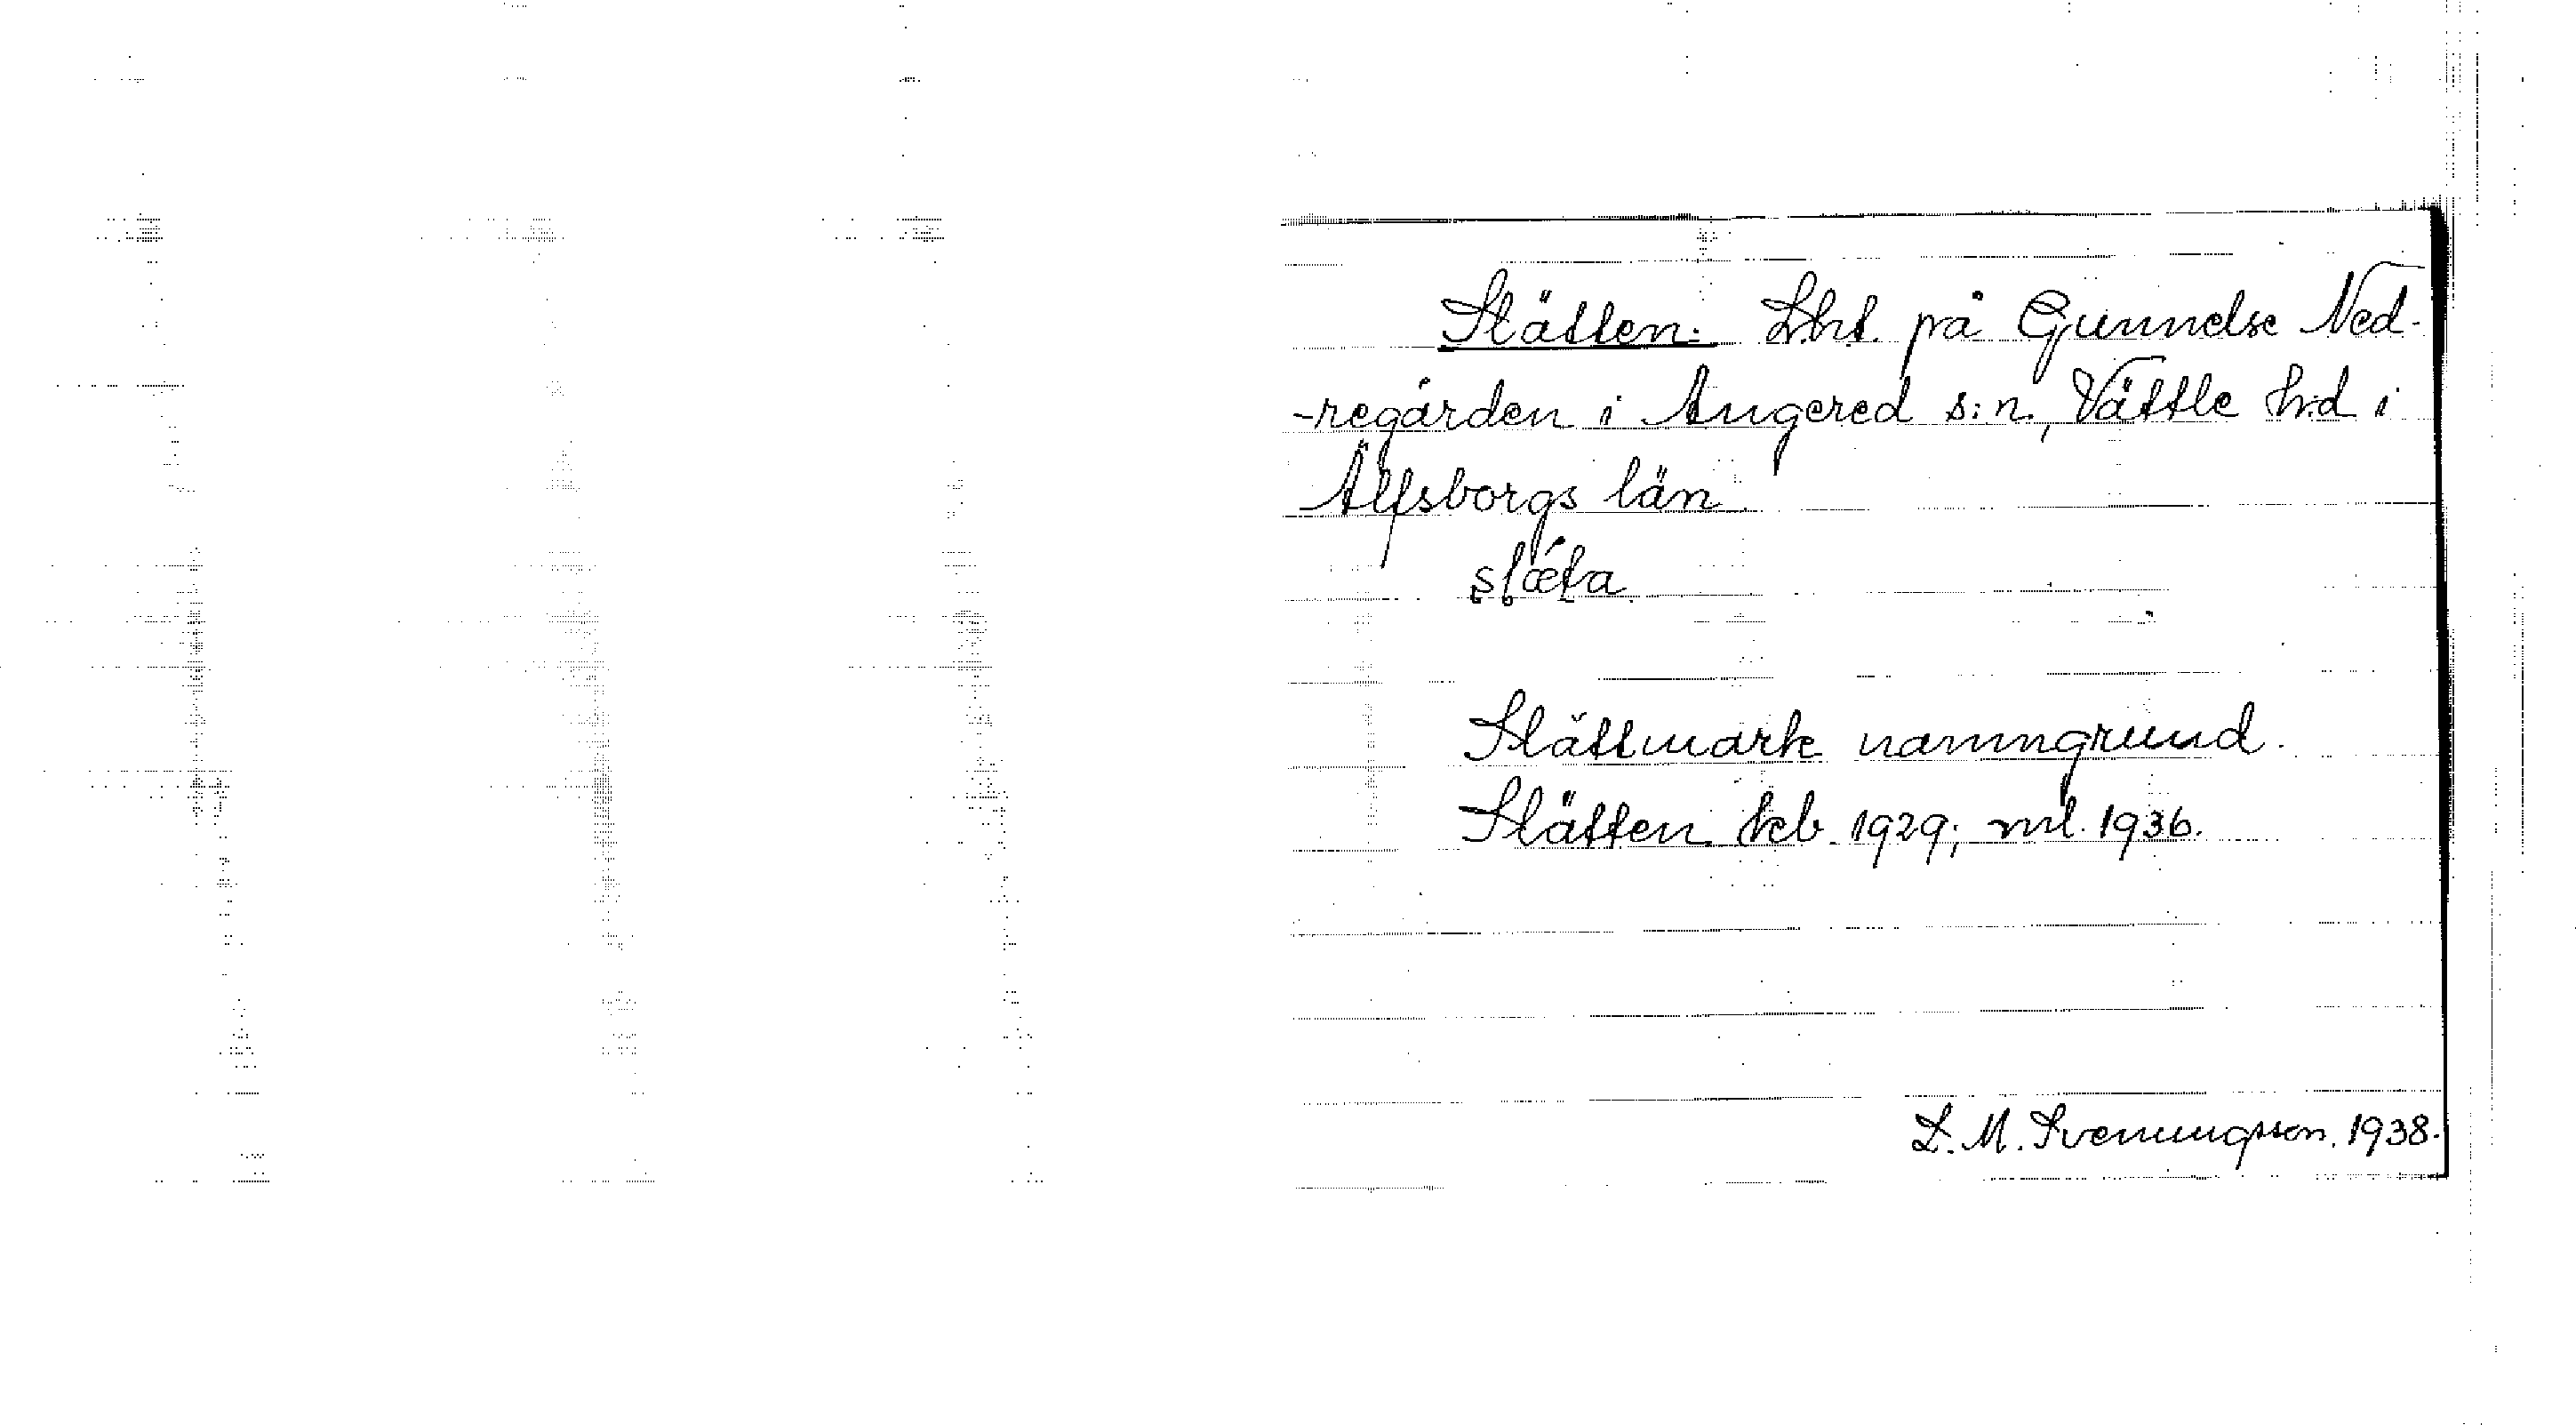 Slätten. Lht. på Gunnelse Ned-
-regården i Angered s:n, Vättle hd i
Älfsborgs län.
slǽta
Slättmark namngrund.
Slätten kb. 1929; ml. 1936.
L. M. Svenungsson. 1938.